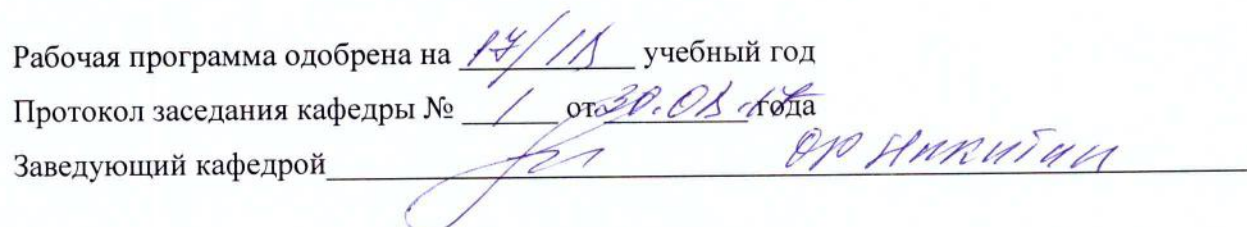 Рабочая программа одобрена на 17/18 учебный год
Протокол заседания кафедры № 1 от 30.08.17 года
Заведующий кафедрой Никитин